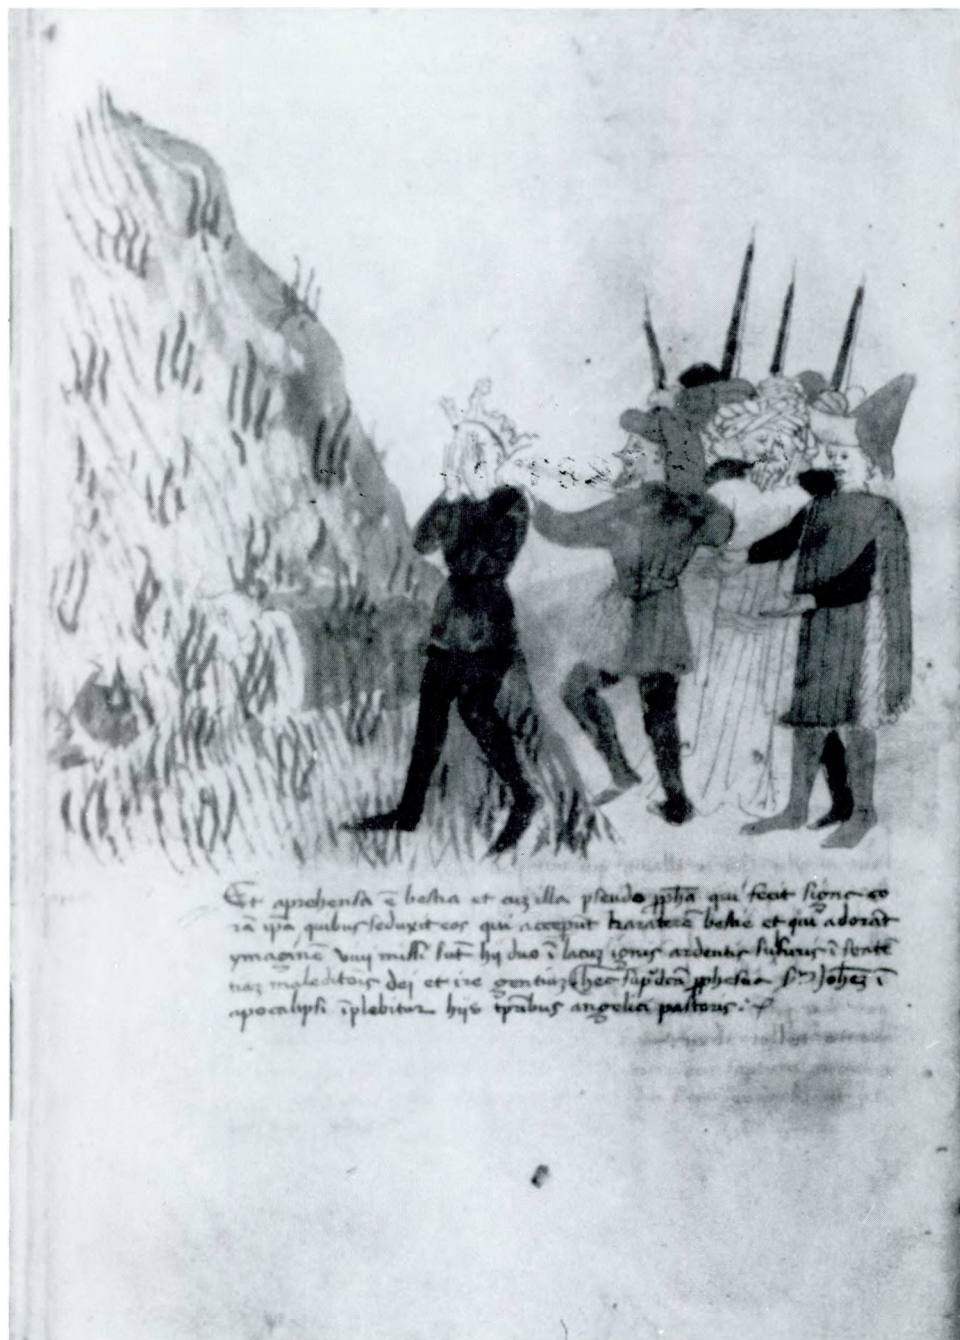 Et aprehensa ē bestia et cuȝ illa pseudo ꝓph̄a qui fecit signa co
rā ip̄a quibus seduxit eos qui acceper̄t karaterē bestie et qui adorāt
ymaginē viui missi sūt hij duo ī lacuȝ ignis ardentis sulfuris ī
maleditōis dei et ire gentiuȝ hec ꝓphesia Joh̄eȝ ī
apocalipsi īplebitur hijs tꝑibus angelici pastoris